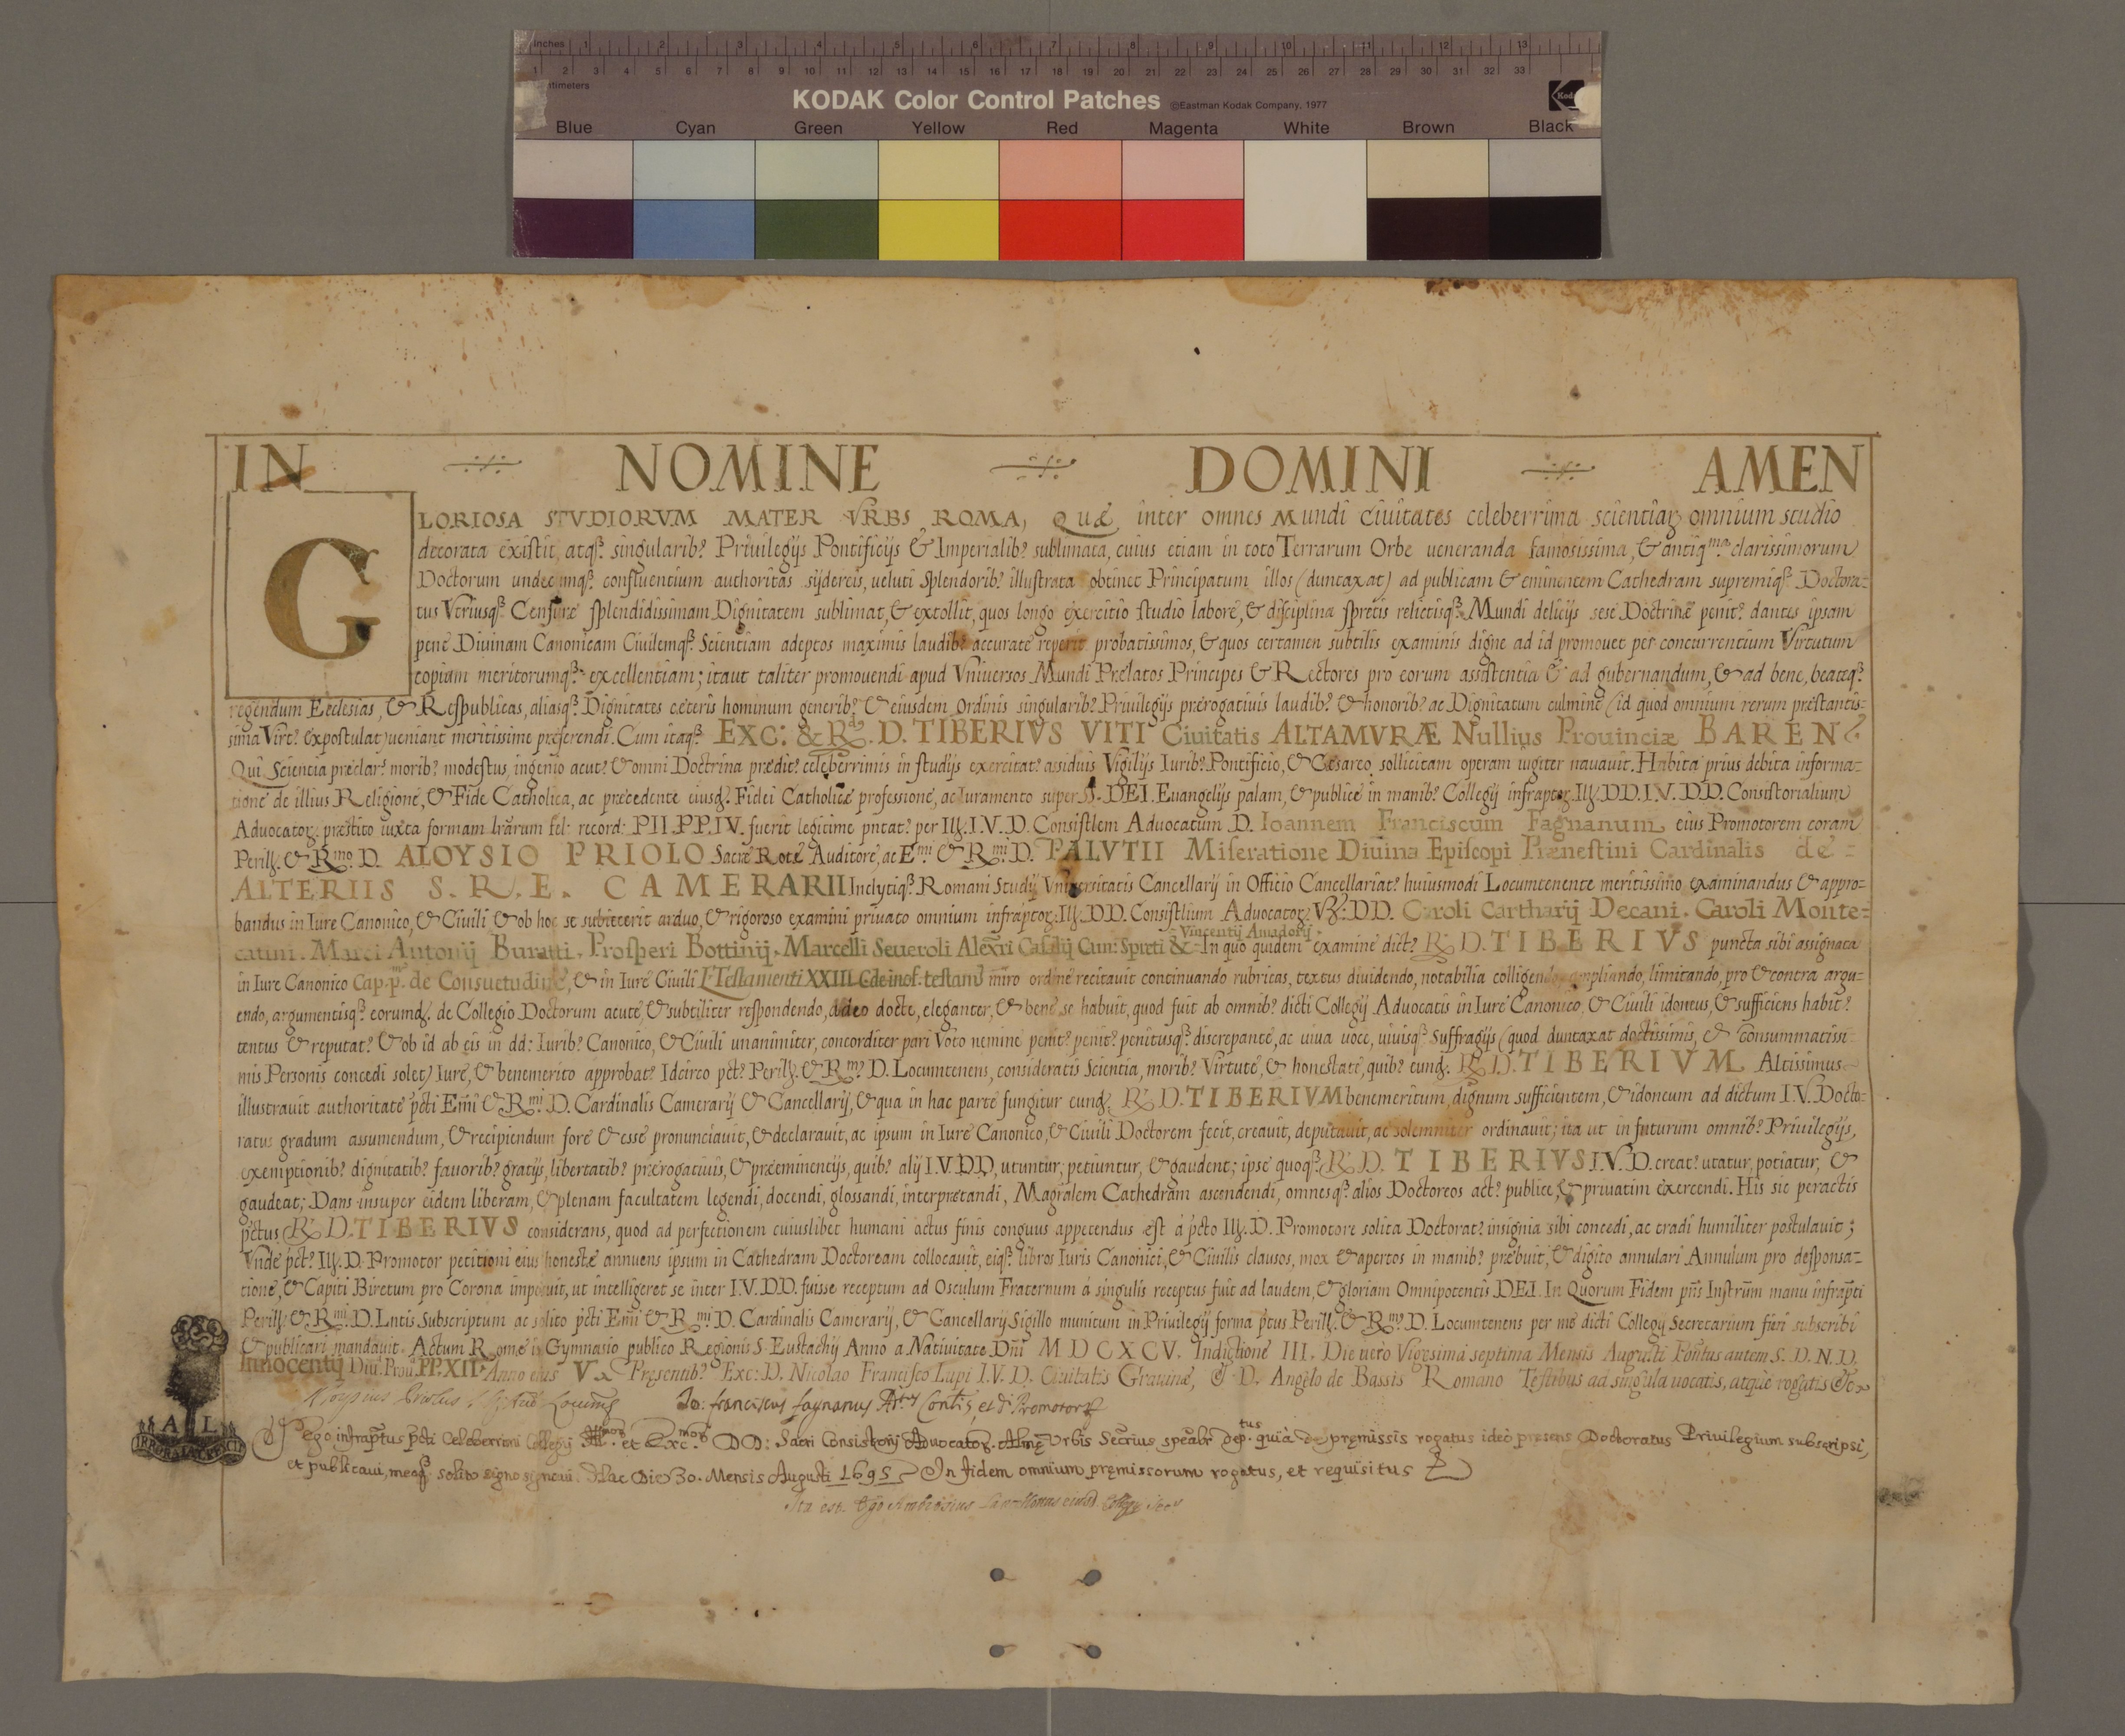 inches 1 2 3 4 5 6 7 8 9 10 11 12 13
1 2 3 4 5 6 7 8 9 10 11 12 13 14 15 16 17 18 19 20 21 22 23 24 25 26 27 28 29 30 31 32 33
KODAK Color Control Patches ©Eastman Kodak Company, 1977
Blue Cyan Green Yellow Red Magenta White Brown Black
IN NOMINE DOMINI AMEN
GLORIOSA STVDIORVM MATER VRBS ROMA, Quæ inter omnes Mundi Ciuitates celeberrima scientiaꝝ omnium studio
decorata existit, atqꝫ singularib9 Priuilegijs Pontificijs & Imperialib9 sublimata, cuius etiam in toto Terrarum Orbe ueneranda famosissima, & antiqma clarissimorum
Doctorum undecumqꝫ confluentium authoritas sydereis, ueluti splendorib9 illustrata obtinet Principatum illos (duntaxat) ad publicam & eminentem Cathedram supremiqꝫ Doctora=
tus Vtriusqꝫ Censuræ splendidissimam Dignitatem sublimat, & extollit, quos longo exercitio studio labore, & disciplina spretis relictisqꝫ Mundi delicijs sese Doctrinæ penit9 dantes ipsam
penè Diuinam Canonicam Ciuilemqꝫ Scientiam adeptos maximis laudib9 accuratè reperit probatissimos, & quos certamen subtilis examinis digne ad id promouet per concurrentium Virtutum
copiam meritorumqꝫ excellentiam; itaut taliter promouendi apud Vniuersos Mundi Prælatos Principes & Rectores pro eorum assistentia & ad gubernandum, & ad bene, beateqꝫ
regendum Ecclesias, & Respublicas, aliasqꝫ Dignitates ceteris hominum generib9 & eiusdem Ordinis singularib9 Priuilegijs prerogatiuis laudib9 & honorib9 ac Dignitatum culmine (id quod omnium rerum præstantis=
sima Virt9 expostulat) ueniant meritissime præferendi. Cum itaqꝫ EXC: & R. D. TIBERIVS VITI Ciuitatis ALTAMVRÆ Nullius Prouinciæ BAREN
Qui Scientia præclar9 morib9 modestus, ingenio acut9 & omni Doctrina prædit9 celeberrimis in studijs exercitat9 assiduis Vigilijs Iurib9 Pontificio, & Cæsareo sollicitam operam iugiter nauauit. Habita prius debita informa=
tione de illius Religione, & Fide Catholica, ac precedente eiusd. Fidei Catholicæ professione, ac Iuramento super SS. DEI. Euangelijs palam, & publicè in manib9 Collegij infraptoꝝ Ill. DD. I.V. DD. Consistorialium
Aduocatoꝝ præstito iuxta formam lrarum fel: record: PII. PP. IV. fuerit legitime pntat9 per Ill. I.V.D. Consistlem Aduocatum D. Ioannem Franciscum Fagnanum eius Promotorem coram
Perill. & Rmo D. ALOYSIO PRIOLO Sacræ Rotæ Auditore, ac Emi & Rmi D. PALVTII Miseratione Diuina Episcopi Prænestini Cardinalis de=
ALTERIIS S. R. E. CAMERARII Inclytiqꝫ Romani Studij Vniuersitatis Cancellarij in Officio Cancellariat9 huiusmodi Locumtenente meritissimo examinandus & appro=
bandus in Iure Canonico, & Ciuili & ob hoc se subiecerit arduo, & rigoroso examini priuato omnium infraptoꝝ Ill. DD. Consistlium Aduocatoꝝ Vꝫ: DD. Caroli Cartharij Decani. Caroli Monte=
catini. Marci Antonij Buratti. Prosperi Bottinij. Marcelli Seueroli Alexri Caſſilij Cun: Spirti & Vincentij Amadorij In quo quidem examine dict9 R. D. TIBERIVS puncta sibi assignata
in Iure Canonico Cap. p. de Consuetudine, & in Iure Ciuili L. Testamenti XXIII C. de inof. testam miro ordine recitauit continuando rubricas, textus diuidendo, notabilia colligendo ampliando, limitando, pro & contra argu=
endo, argumentisqꝫ eorumd. de Collegio Doctorum acutè, & subtiliter respondendo, adeo docte, eleganter, & bene se habuit, quod fuit ab omnib9 dicti Collegij Aduocatis in Iure Canonico, & Ciuili idoneus, & sufficiens habit9
tentus & reputat9 & ob id ab eis in dd: Iurib9 Canonico, & Ciuili unanimiter, concorditer pari Voto nemine penit9 penit9 penitusqꝫ discrepante, ac uiua uoce, uiuisqꝫ Suffragijs (quod duntaxat doctissimis, et consummatissi=
mis Personis concedi solet) Iure, & benemerito approbat9 Idcirco pct9 Perill. & Rmus D. Locumtenens, consideratis Scientia, morib9 Virtute, & honestate, quib9 eund. R. D. TIBERIVM Altissimus
illustrauit authoritate pcti Emi & Rmi D. Cardinalis Camerarij & Cancellarij, & qua in hac parte fungitur eund. R. D. TIBERIVM benemeritum, dignum sufficientem, & idoneum ad dictum I.V. Docto=
ratus gradum assumendum, & recipiendum fore & esse pronunciauit, & declarauit, ac ipsum in Iure Canonico, & Ciuili Doctorem fecit, creauit, deputauit, ac solemniter ordinauit; ita ut in futurum omnib9 Priuilegijs,
exemptionib9 dignitatib9 fauorib9 gratijs, libertatib9 prærogatiuis, & præeminentijs, quib9 alij I.V. DD, utuntur, petiuntur, & gaudent; ipse quoqꝫ R. D. TIBERIVS I.V.D. creat9 utatur, potiatur, &
gaudeat; Dans insuper eidem liberam, & plenam facultatem legendi, docendi, glossandi, interpretandi, Magralem Cathedram ascendendi, omnesqꝫ alios Doctoreos act9 publicè, & priuatim exercendi. His sic peractis
pctus R. D. TIBERIVS considerans, quod ad perfectionem cuiuslibet humani actus finis conguus appetendus est à pcto Ill. D. Promotore solita Doctorat9 insignia sibi concedi, ac tradi humiliter postulauit;
Vnde pct9 Ill. D. Promotor petitioni eius honestæ annuens ipsum in Cathedram Doctoream collocauit, eiqꝫ libros Iuris Canonici, & Ciuilis clausos, mox & apertos in manib9 præbuit, & digito annulari Annulum pro desponsa=
tione, & Capiti Biretum pro Corona imposuit, ut intelligeret se inter I.V. DD. fuisse receptum ad Osculum Fraternum à singulis receptus fuit ad laudem, & gloriam Omnipotentis DEI. In Quorum Fidem pns Instrum manu infrapti
Perill. & Rmi D. Lntis Subscriptum ac solito pcti Emi & Rmi D. Cardinalis Camerarij, & Cancellarij Sigillo munitum in Priuilegij forma pctus Perill. & Rmus D. Locumtenens per me dicti Collegij Secretarium fieri subscribi
& publicari mandauit. Actum Romæ in Gymnasio publico Regionis S. Eustachij Anno a Natiuitate Dni MDCXCV. Indictione III. Die uero Vigesima septima Mensis Augusti Pontus autem S. D. N. D.
Innocentij Diu. Prou. PP. XII. Anno eius V. Presentib9 Exc: D. Nicolao Francisco Lupi I.V.D. Ciuitatis Grauinæ, & D. Angelo de Bassis Romano Testibus ad singula uocatis, atque rogatis &c
Aloysius Priolus Locumts
Jo: franciscus fagnanus et Promotor
A L
Ego infraptus pcti Celeberrimi Collegij Illmor et Excmor DD: Sacri Consistorij Aduocator. Almę Vrbis Secrius speabr dep.tus quia de pręmissis rogatus ideò presens Doctoratus Priuilegium subscripsi,
et publicaui, meoqꝫ solito signo signaui. Hac Die 30. Mensis Augusti 1695 In fidem omnium pręmissorum rogatus, et requisitus
Ita est. Ego Ambrosius eiusd. Collegij Secr